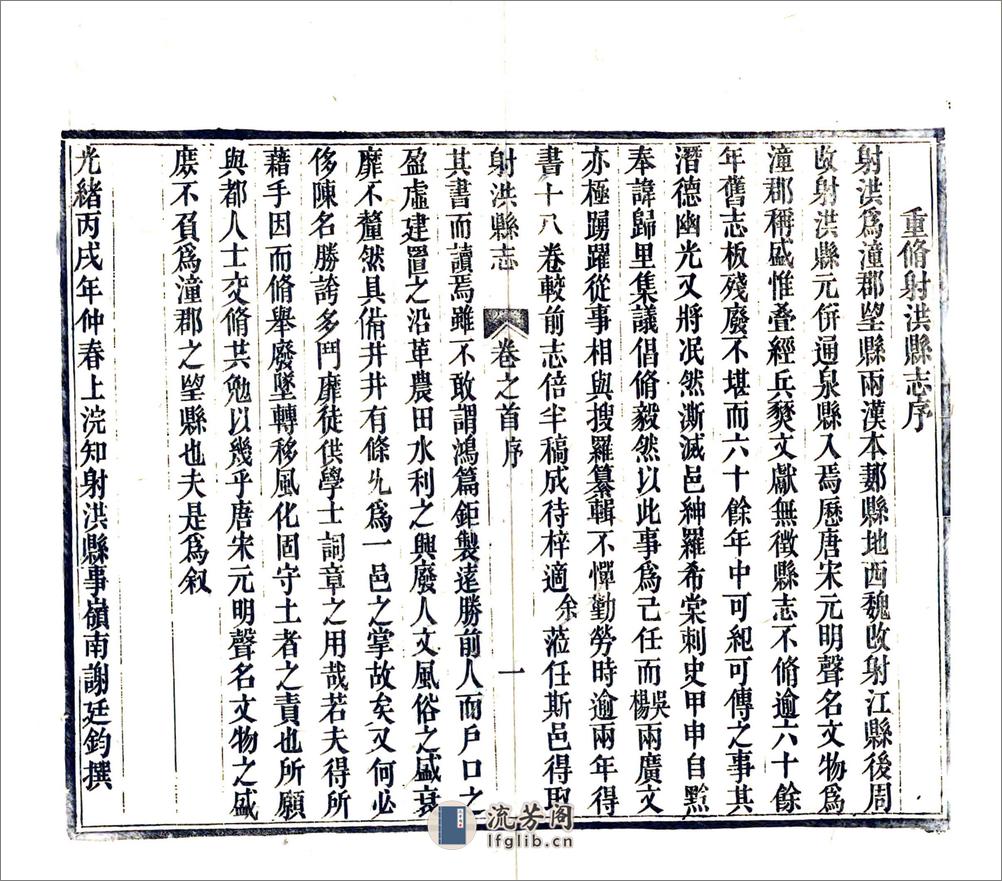 重脩射洪縣志序
射洪爲潼郡望縣兩漢本郪縣地西魏改射江縣後周
改射洪縣元併通泉縣入焉歷唐宋元明聲名文物爲
潼郡稱盛惟叠經兵燹文獻無徵縣志不脩逾六十餘
年舊志板殘廢不堪而六十餘年中可紀可傳之事其
潛德幽光又將泯然澌滅邑紳羅希棠刺史甲申自黔
奉諱歸里集議倡脩毅然以此事爲己任而吳楊兩廣文
亦極踴躍從事相與搜羅纂輯不憚勤勞時逾兩年得
書十八卷較前志倍半稿成待梓適余蒞任斯邑得取
射洪縣志 卷之首 序 一
其書而讀焉雖不敢謂鴻篇鉅製遠勝前人而戶口之
盈虛建置之沿革農田水利之興廢人文風俗之盛衰
靡不釐然具備井井有條允爲一邑之掌故矣又何必
侈陳名勝誇多鬥靡徒供學士詞章之用哉若夫得所
藉手因而脩舉廢墜轉移風化固守土者之責也所願
與都人士交脩其勉以幾乎唐宋元明聲名文物之盛
庶不負爲潼郡之望縣也夫是爲叙
光緒丙戌年仲春上浣知射洪縣事嶺南謝廷鈞撰
流芳阁
lfglib.cn